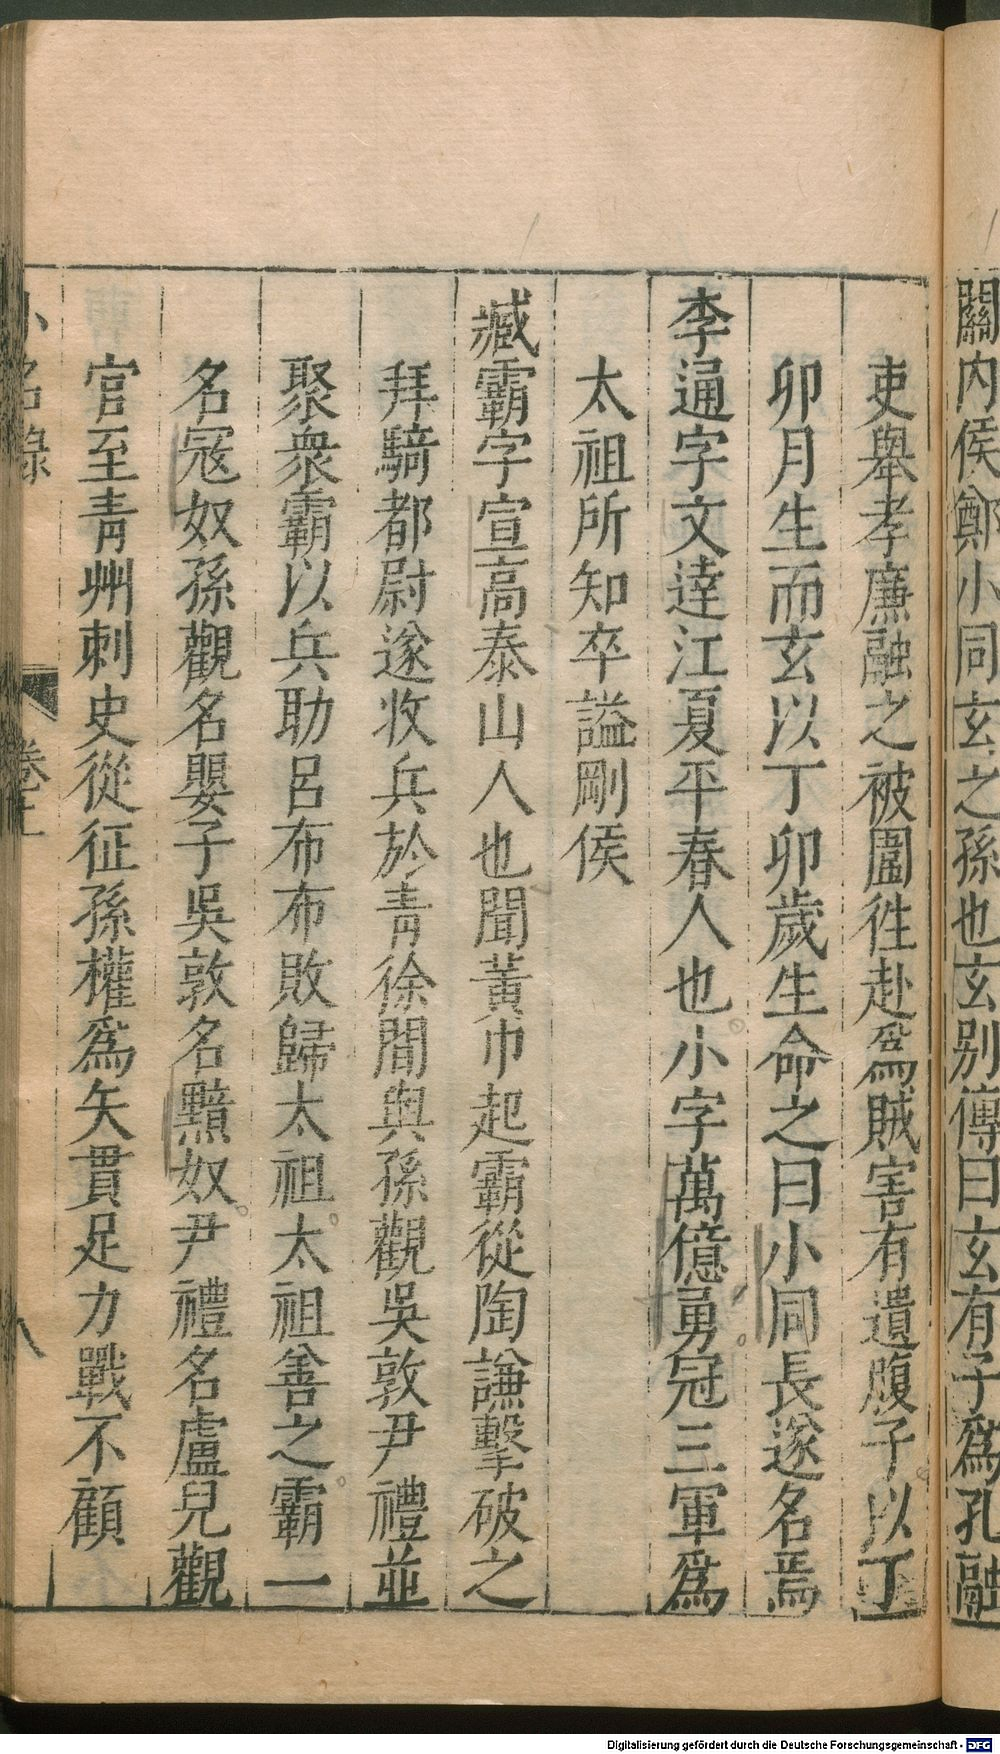 關内侯鄭小同玄之孫也玄别傳曰玄有子爲孔融
吏舉孝廉融之被圍徃赴爲賊害有遺腹子以丁
卯月生而玄以丁卯歲生命之曰小同長遂名焉
李通字文達江夏平春人也小字萬億勇冠三軍爲
太祖所知卒謚剛侯
臧霸字宣高泰山人也聞黄巾起霸從陶謙擊破之
拜騎都尉遂收兵於青徐間與孫觀吳敦尹禮並
聚衆霸以兵助呂布布敗歸太祖太祖善之霸一
名寇奴孫觀名嬰子吳敦名黯奴尹禮名盧兒觀
官至青州刺史從征孫權爲矢貫足力戰不顧
小名錄 卷上 八
Digitalisierung gefördert durch die Deutsche Forschungsgemeinschaft - DFG